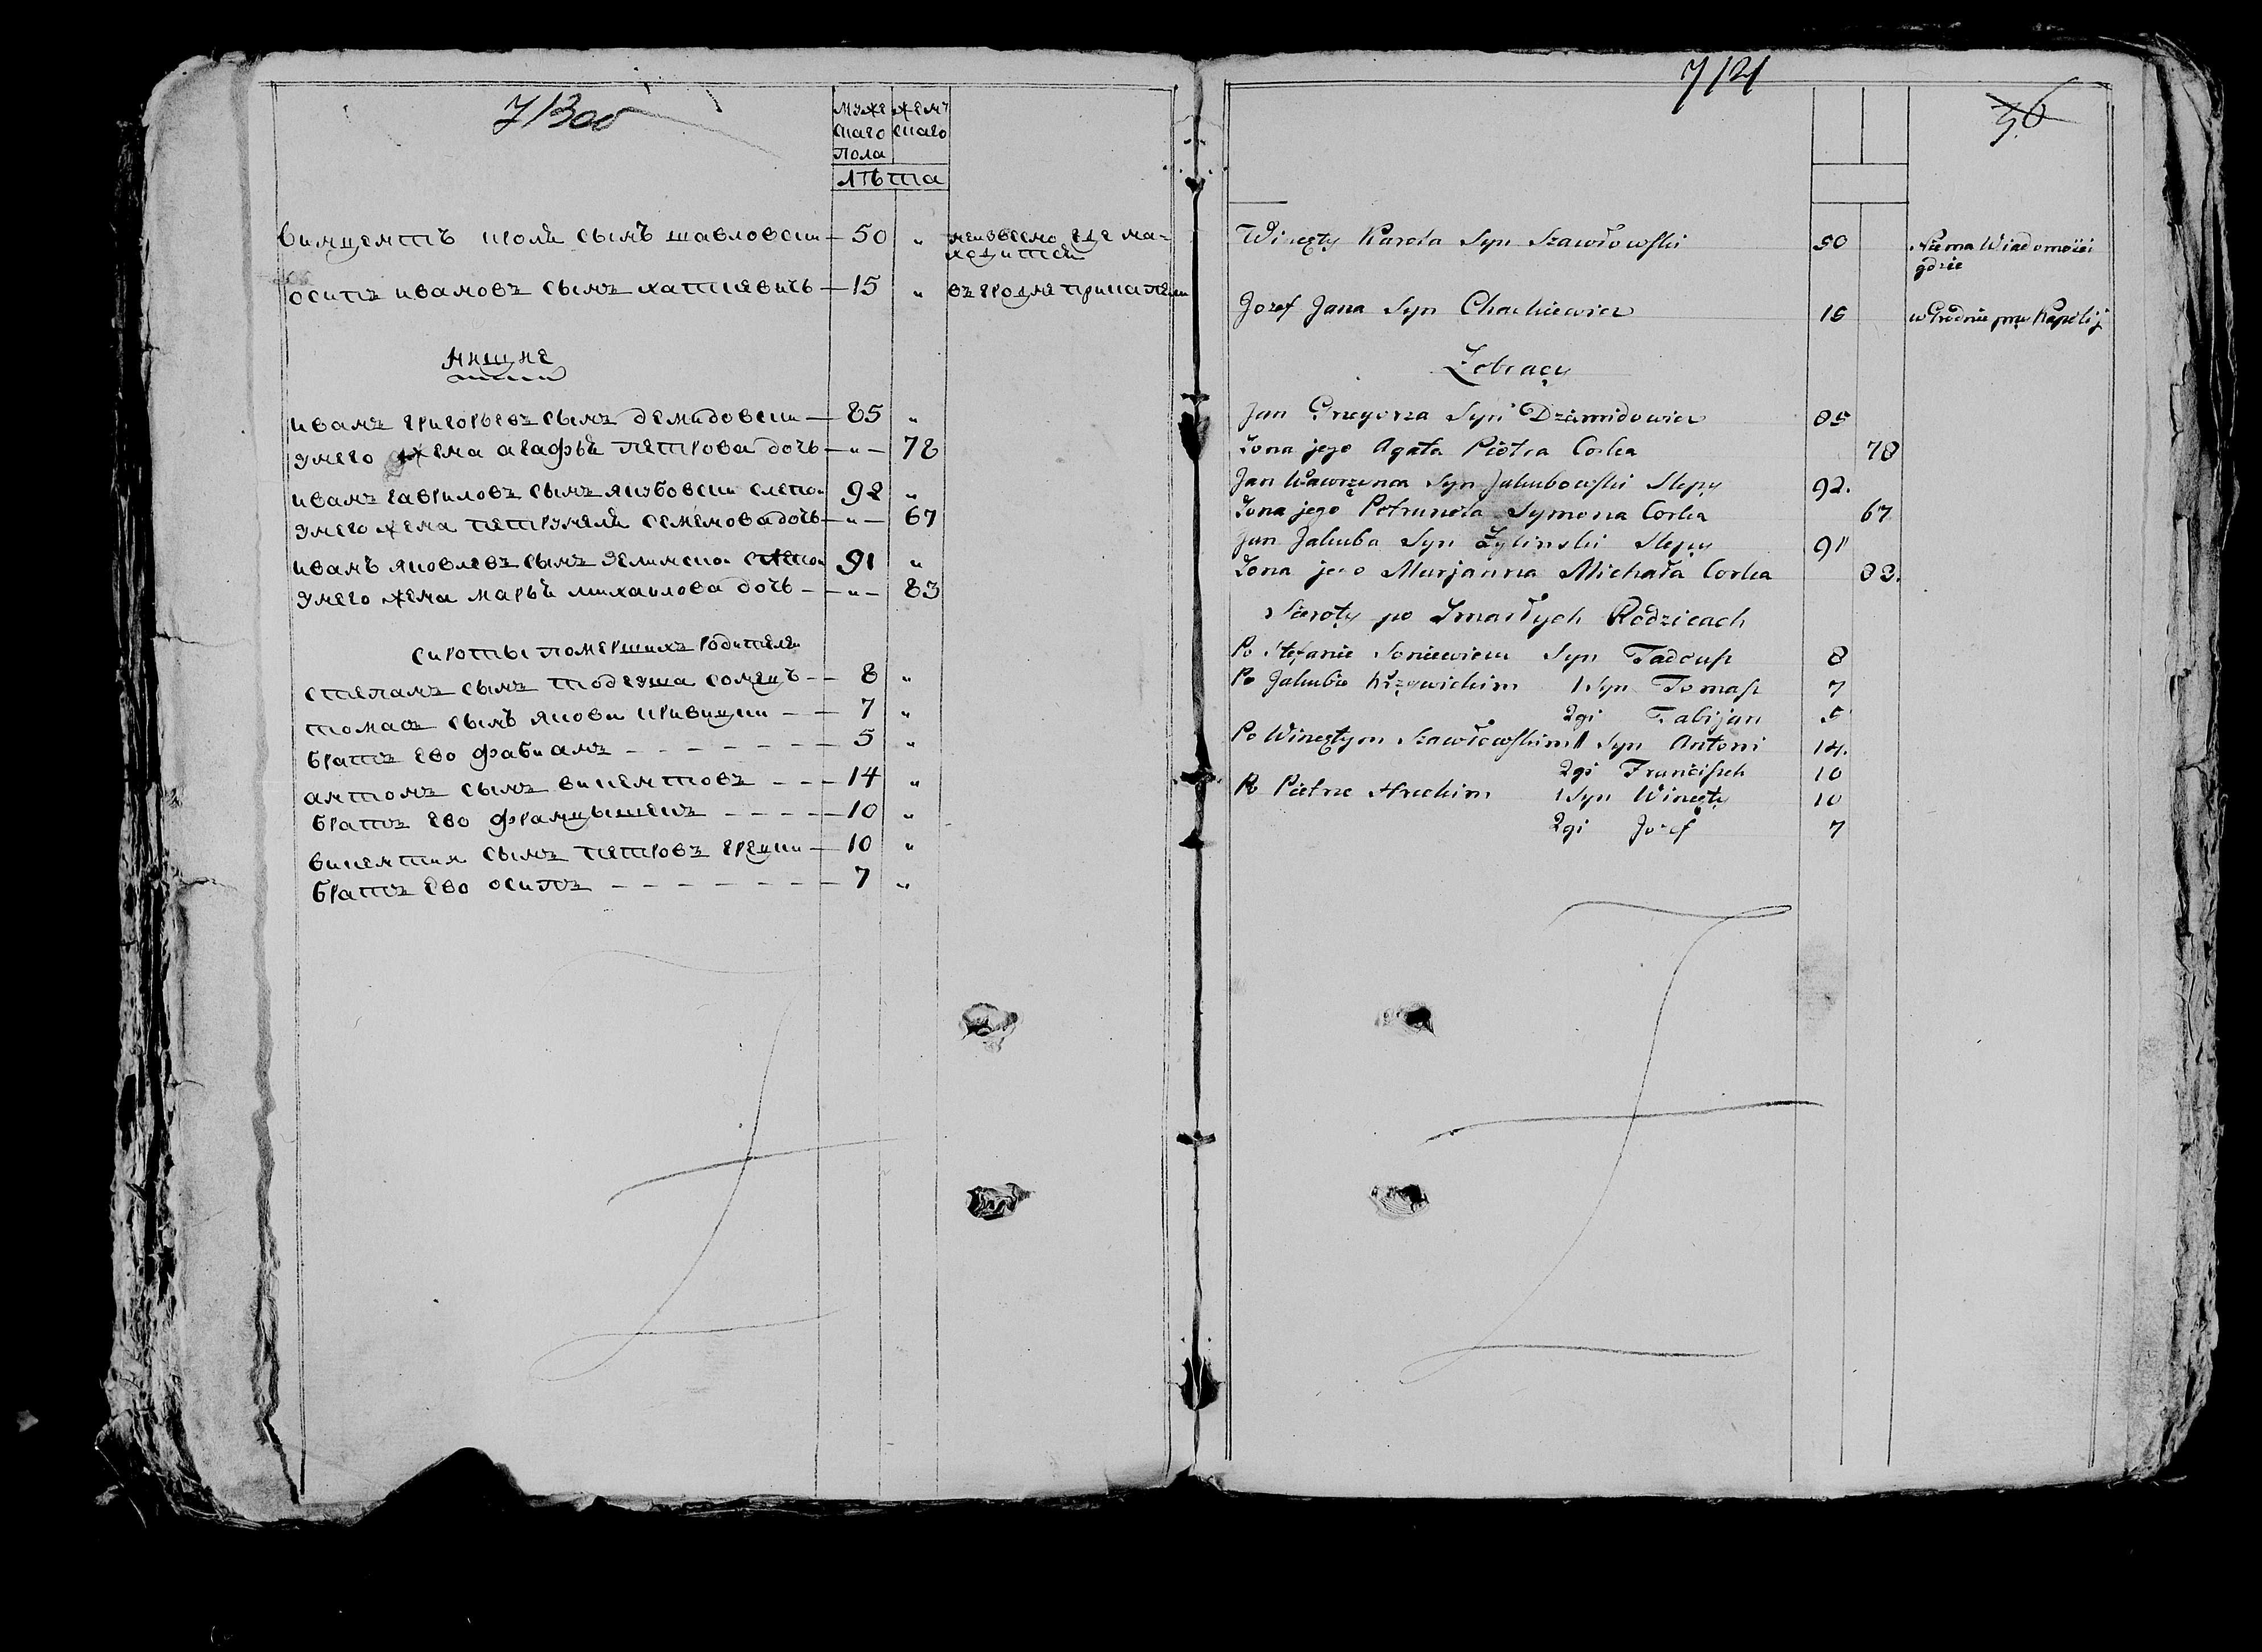 713об
муже
скаго
пола
женъ
скаго
лѣта
винцентъ кроля сынъ шавловски 50 "
неизвесно где на=
ходится
осипъ ивановъ сынъ хацкевичь 15 "
въ гродне при
нищие
иванъ григорьевъ сынъ демидовски 85 "
унего жена агафья петрова дочь " 78
иванъ гавриловъ сынъ якубовски слепои 92 "
унего жена петрунеля семенова дочь " 67
иванъ яковлевъ сынъ слепои 91 "
унего жена марья михаилова дочь " 83
сироты помершихъ родителеи
степанъ сынъ тодеуша 8 "
томаш сынъ якова кривицки 7 "
братъ ево фабианъ 5 "
антонъ сынъ викентовъ 14 "
братъ ево францышекъ 10 "
викентии сынъ петровъ грецки 10 "
братъ ево осипъ 7 "
714
36
Wincęty Karola Syn Szawłowski 50
Niema Wiadomości
gdzie
Jozef Jana Syn Chackiewicz 15
w Grodnie przy Kapelij
Zebracy
Jan Grzegorza Syn Dziamidowicz 85
Zona jego Agata Piotra Corka 78
Jan Wawrzynca Syn Jakubowski Slepy 92.
Zona jego Petrunela Symona Corka 67
Jan Jakuba Syn Zylinski Slepy 91
Zona jego Marjanna Michała Corka 83.
Sieroty po Zmarłych Rodzicach
Po Stefanie Soniewiczu Syn Tadeusz 8
Po Jakubie Krzywickim 1 Syn Tomasz 7
2gi Fabijan 5
Po Wincętym Szawłowskim 1 Syn Antoni 14.
2gi Franciszek 10
Po Pietrze Hreckim 1 Syn Wincęty 10
2gi Jozef 7